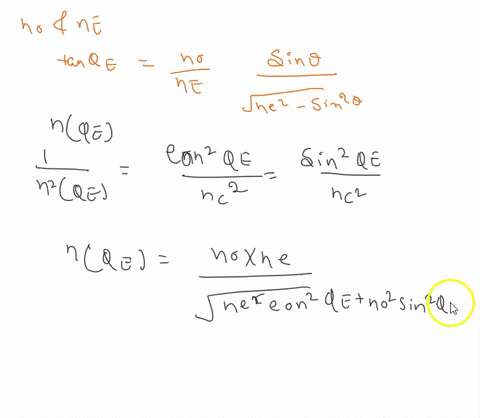 no & nE
tanQE = no/nE sinθ/√(ne² - sin²θ)
n(QE)
1/n²(QE) = Con² QE/nc² = sin² QE/nc²
n(QE) = no x ne/√(ne² con² QE + no² sin² Q